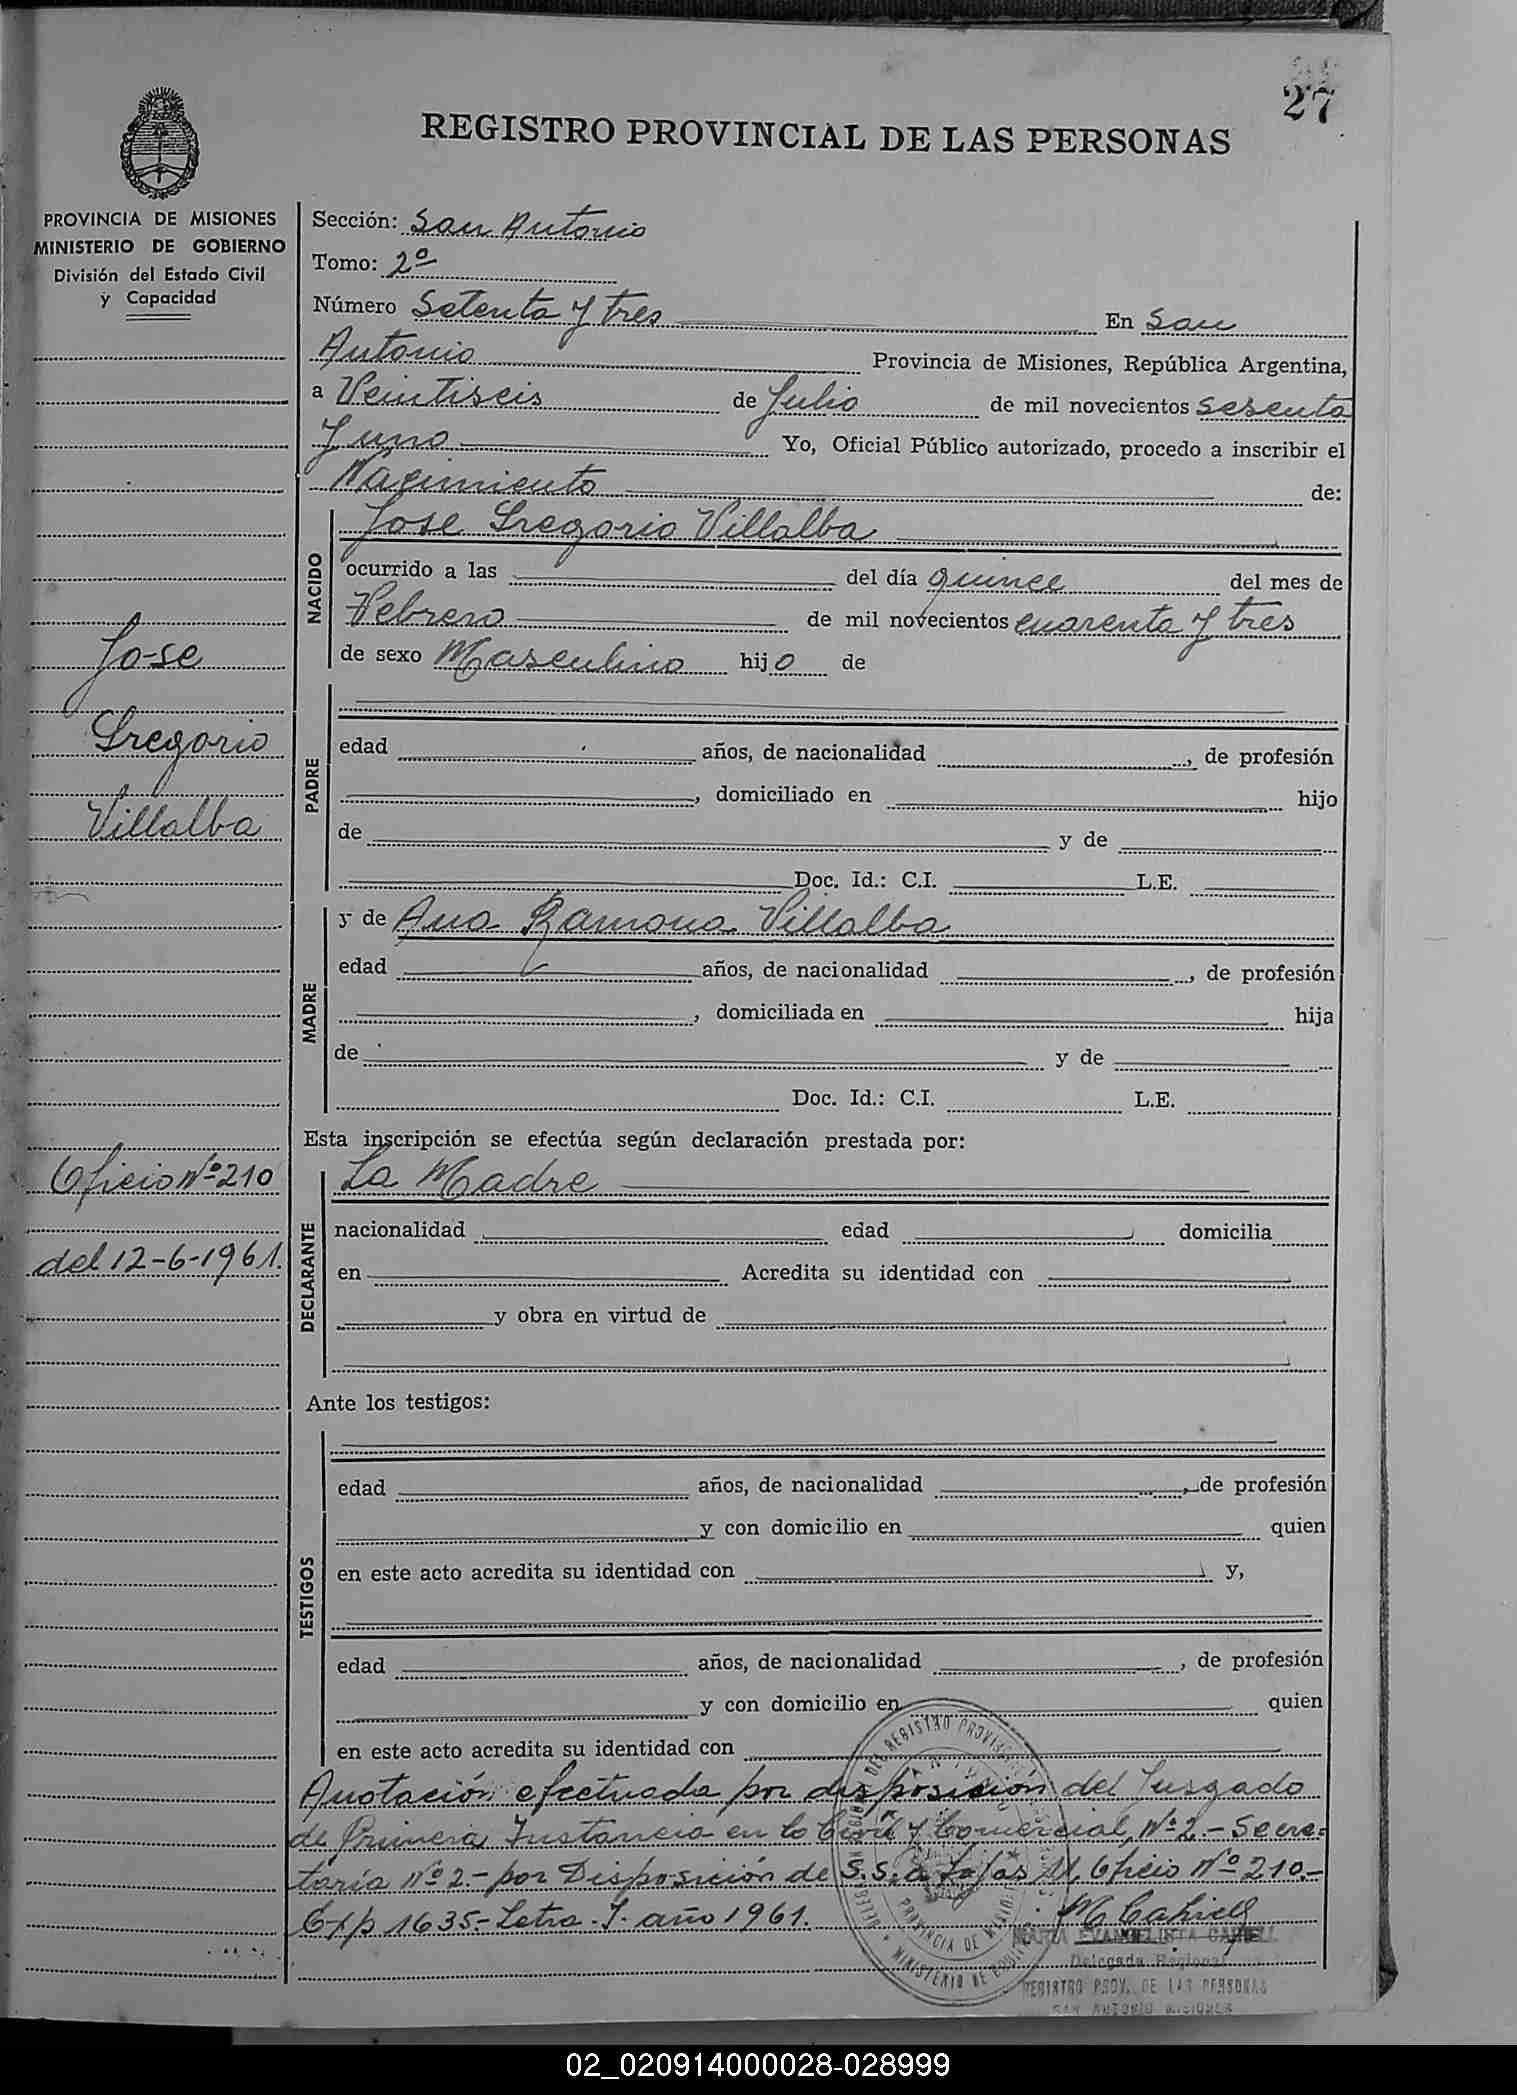 27
REGISTRO PROVINCIAL DE LAS PERSONAS
PROVINCIA DE MISIONES
MINISTERIO DE GOBIERNO
División del Estado Civil
y Capacidad
Sección: San Antonio
Tomo: 2º
Número Setenta y tres En San
Antonio Provincia de Misiones, República Argentina,
a Veintiseis de Julio de mil novecientos sesenta
y uno Yo, Oficial Público autorizado, procedo a inscribir el
Nacimiento de:
NACIDO
Jose Gregorio Villalba
ocurrido a las del día quince del mes de
Febrero de mil novecientos cuarenta y tres
de sexo Masculino hijo de
Jose
Gregorio
Villalba
PADRE
edad años, de nacionalidad , de profesión
, domiciliado en hijo
de y de
Doc. Id.: C.I. L.E.
MADRE
y de Ana Ramona Villalba
edad años, de nacionalidad , de profesión
, domiciliada en hija
de y de
Doc. Id.: C.I. L.E.
Esta inscripción se efectúa según declaración prestada por:
Oficio Nº 210
del 12-6-1961.
DECLARANTE
La Madre
nacionalidad edad domicilia
en Acredita su identidad con
y obra en virtud de
Ante los testigos:
TESTIGOS
edad años, de nacionalidad , de profesión
y con domicilio en quien
en este acto acredita su identidad con y,
edad años, de nacionalidad , de profesión
y con domicilio en quien
en este acto acredita su identidad con
Anotación efectuada por disposición del Juzgado
de Primera Instancia en lo Civil y Comercial, Nº 2.- Secre-
taría Nº 2.- por Disposición de S.S. a Oficio Nº 210.-
Exp 1635.- Letra. J. año 1961.
MARIA EVANGELISTA
Delegada Regional
REGISTRO PROV. DE LAS PERSONAS
SAN ANTONIO MISIONES
02_020914000028-028999